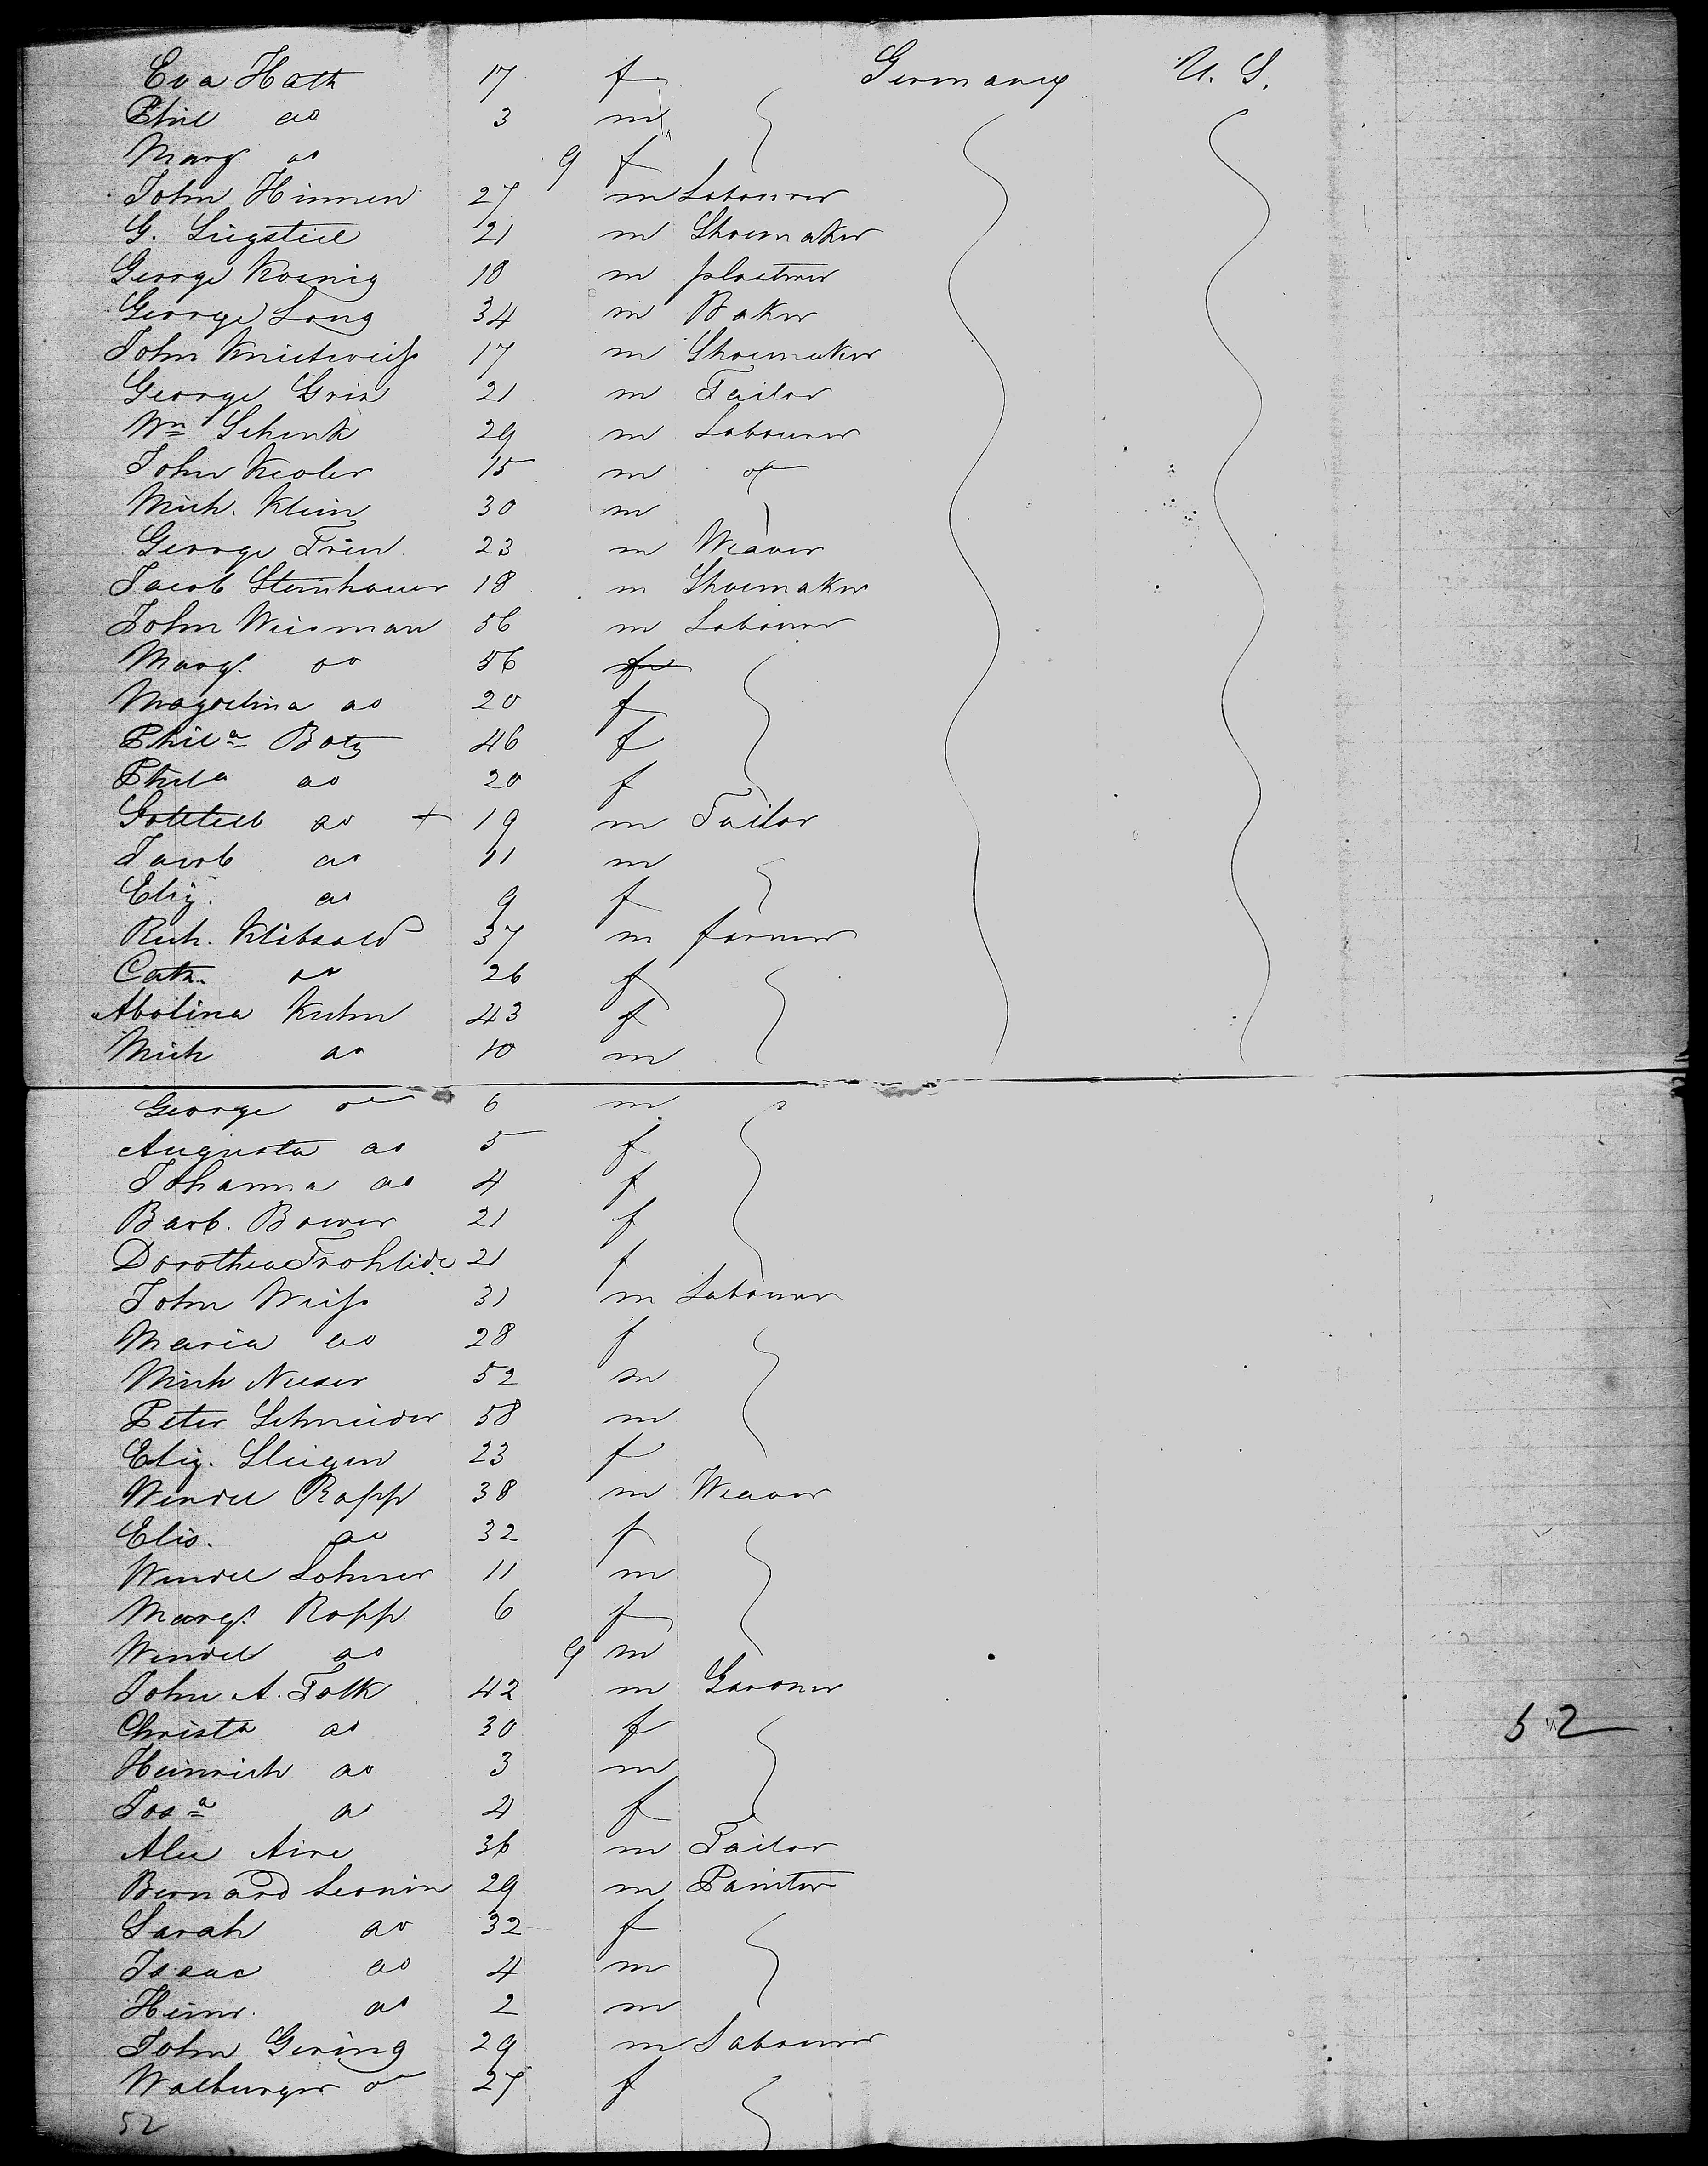 Eva Hath 17 f Germany U. S.
Phil do 3 m
Margt do 9 f
John Hinnen 27 m Labourer
G. Siegsteil 21 m Shoemaker
George Koenig 18 m plastrer
George Long 34 m Baker
John Knietweiss 17 m Shoemaker
George Grix 21 m Tailor
Wm Schenk 29 m Labourer
John Kesler 15 m do
Mich. Klein 30 m
George Frein 23 m Weaver
Jacob Steinhauer 18 m Shoemaker
John Wiesman 56 m Labourer
Margt do 56 f
Magdelina do 20 f
Phila Botz 46 f
Phila do 20 f
Gottlieb do + 19 m Tailor
Jacob do 11 m
Eliz. do 9 f
Rich. Klibsald 37 m farmer
Cath. do 26 f
Abolina Kuhn 43 f
Mich do 10 m
George do 6 m
Augusta do 5 f
Johanna do 4 f
Barb. Bower 21 f
Dorothea Frohlide 21 f
John Weiss 31 m Labourer
Maria do 28 f
Mich Nieser 52 m
Peter Schneider 58 m
Eliz. Sleigen 23 f
Wendel Rapp 38 m Weaver
Elis. do 32 f
Wendel Lohmer 11 m
Margt Ropp 6 f
Wendel do 9 m
John A. Folk 42 m Gardner
Christa do 30 f
Heinrich do 3 m
Josa do 4 f
Alex Aire 36 m Tailor
Bernard Leonin 29 m Painter
Sarah do 32 f
Isaac do 4 m
Heinr. do 2 m
John Gering 29 m Labourer
Walburger do 27 f
52
52